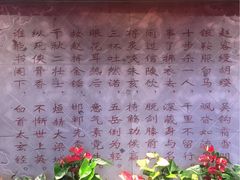 赵客缦胡缨，吴钩霜
银鞍照白马，飒沓如
十步杀一人，千里不留行。
事了拂衣去，深藏身与名。
闲过信陵饮，脱剑膝前
将炙啖朱亥，持觞劝侯
三杯吐然诺，五岳倒为轻。
眼花耳热后，意气素霓
救赵挥金锤，邯郸先
千秋二壮士，烜赫大梁城。
纵死侠骨香，不惭世上英。
谁能书阁下，白首太玄经。